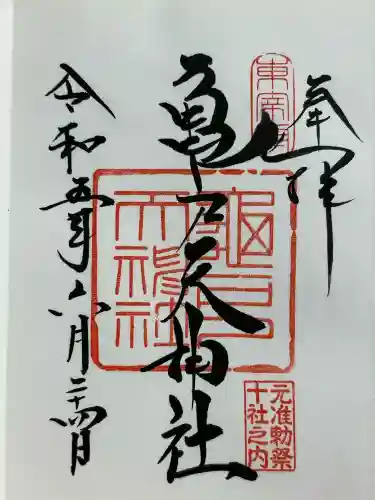 奉拝
東宰府
亀戸天神社
亀戸天神社
元准勅祭
十社之内
令和五年六月二十四日